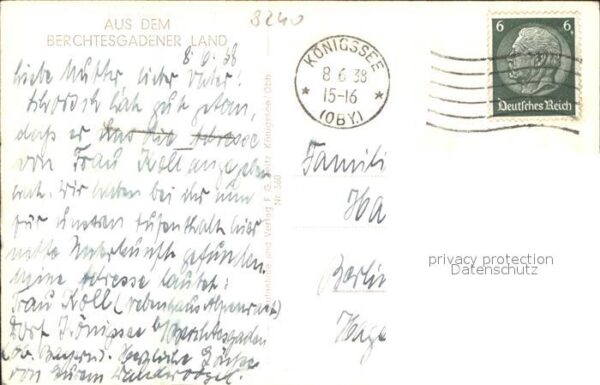 AUS DEM
BERCHTESGADENER LAND
3240
8.6.38
Liebe Mutter lieber Vater!
hat gut getan,
daß er uns die Adresse
von Frau Köll angegeben
hat. Wir haben bei ihr nun
für unseren Aufenthalt hier
nette Unterkunft gefunden.
Meine Adresse lautet:
Frau Köll (Nebenhaus Alpenrast)
Dorf Königssee b/Berchtesgaden
(Ob. Bayern). Herzliche Grüße
von Eurem Wandervogel.
und Verlag F. G. Zeitz, Königssee Obb.
Nr. 360
KÖNIGSSEE
8.6.38
15-16
* *
(OBY.)
6 6
Deutsches Reich
Famili
Ha
Berlin
Hage
privacy protection
Datenschutz